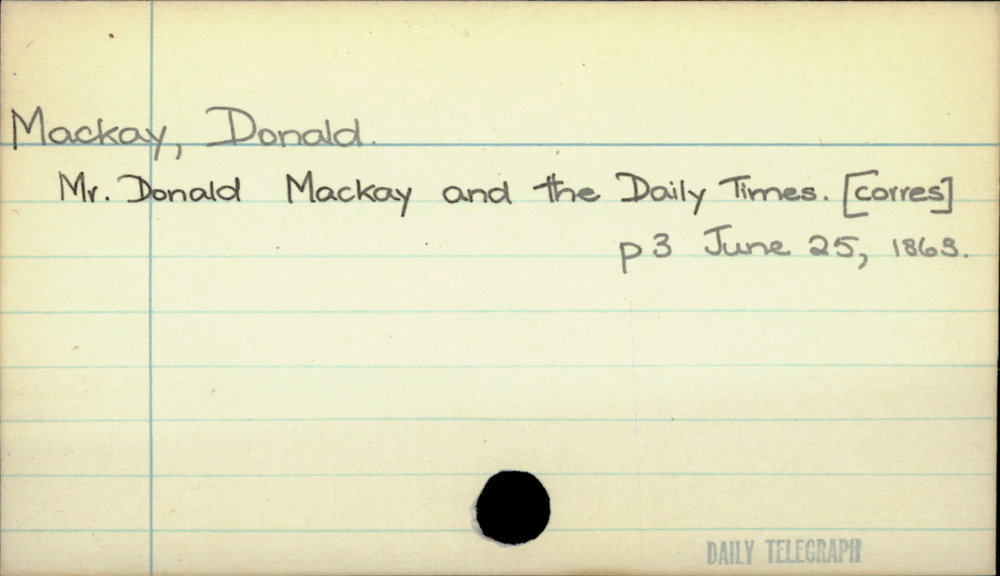 Mackay, Donald.
Mr. Donald Mackay and the Daily Times. [corres]
p3 June 25, 1863.
DAILY TELEGRAPH